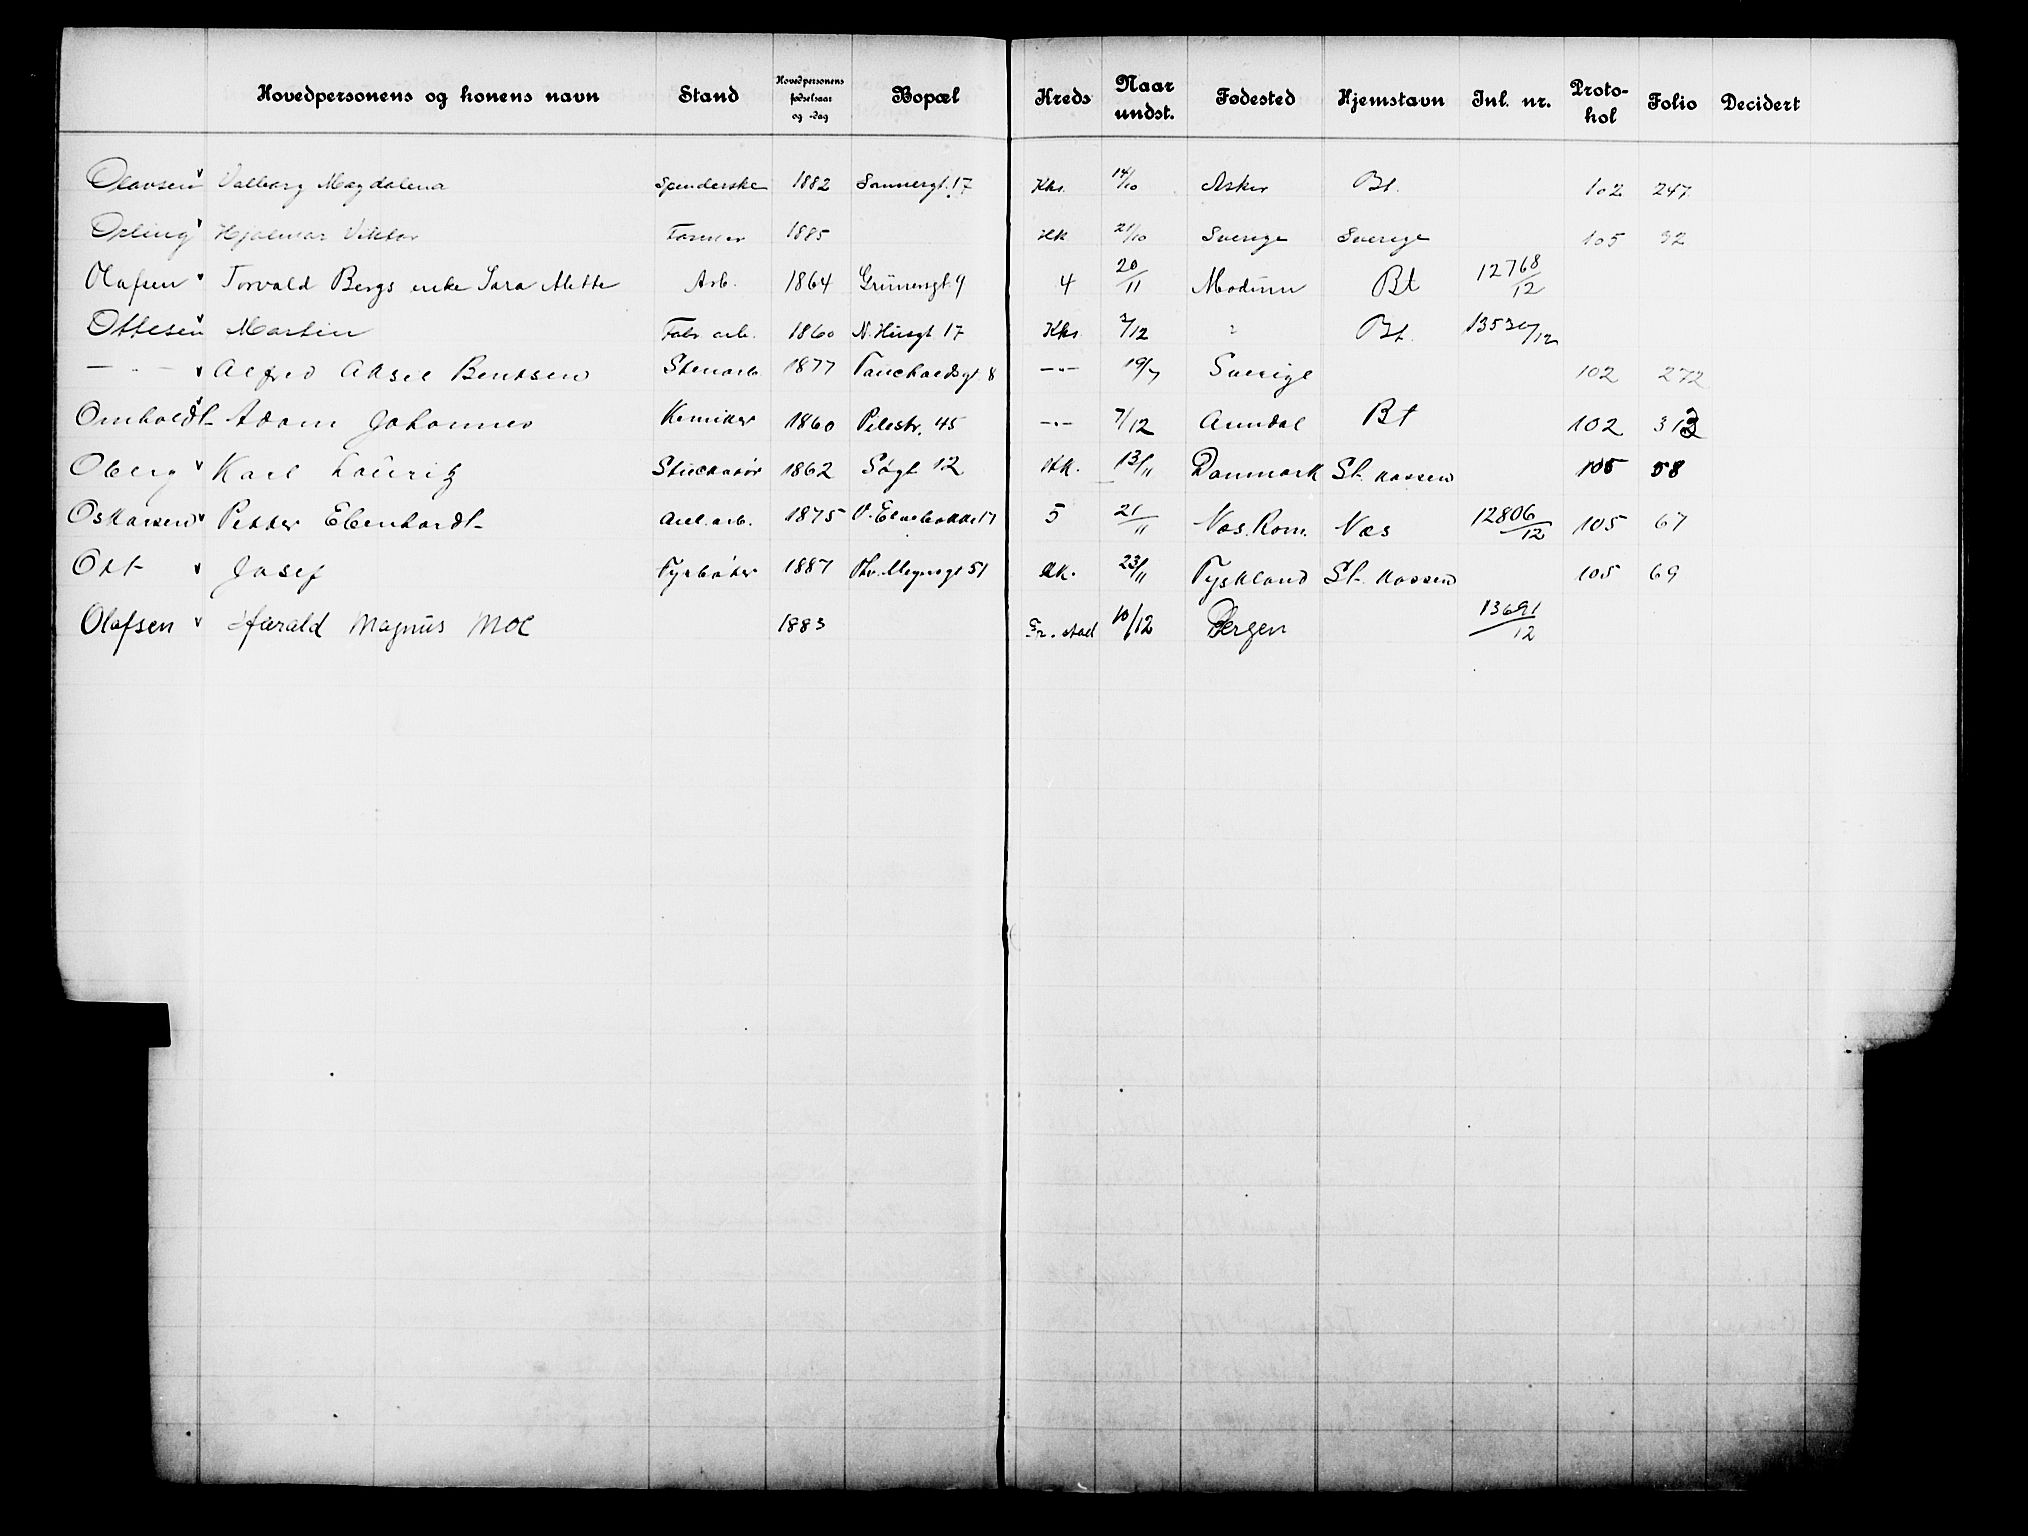 Hovedpersonens og konens navn Stand Hovedpersonens fødselsaar og -dag Bopæl Kreds Naar undst. Fødested Hjemstavn Inl. nr. Proto-kol Folio Decidert
Olavsen Valborg Magdalena Spinderske 1882 Sannergt. 17 Kks. 14/10 Asker Bt. 102 247
Hjalmar Viktor 1885 Kk 21/10 Sverige Sverige 105 32
Olafsen Torvald Bergs enke Sara Mette Arb. 1864 Grünersgt 9 4 20/11 Modum Bt 12768/12
Ottesen Martin Fabr. arb. 1860 17 Kks. 2/12 " Bt. 13530/12
— " — Alfred Aksel Bentsen Stenarb 1877 8 — " — 19/7 Sverige 102 272
Omholdt Adam Johannes Kemiker 1860 Pilestr. 45 — " — 7/12 Arendal Bt 102 313
Oberg Karl Lauritz Stuckatør 1862 12 Kk. 13/11 Danmark St. kassen 105 58
Oskarsen Petter Ebenhardt 1875 V. Elvebakke 17 5 21/11 Næs. Rom. Næs 12806/12 105 67
Ott Josef Fyrbøter 1887 Thv. Meyersgt 51 Kk. 23/11 Tyskland St. kassen 105 69
Olafsen Harald Magnus Moe 1883 Fr. stad 10/12 Bergen 13691/12